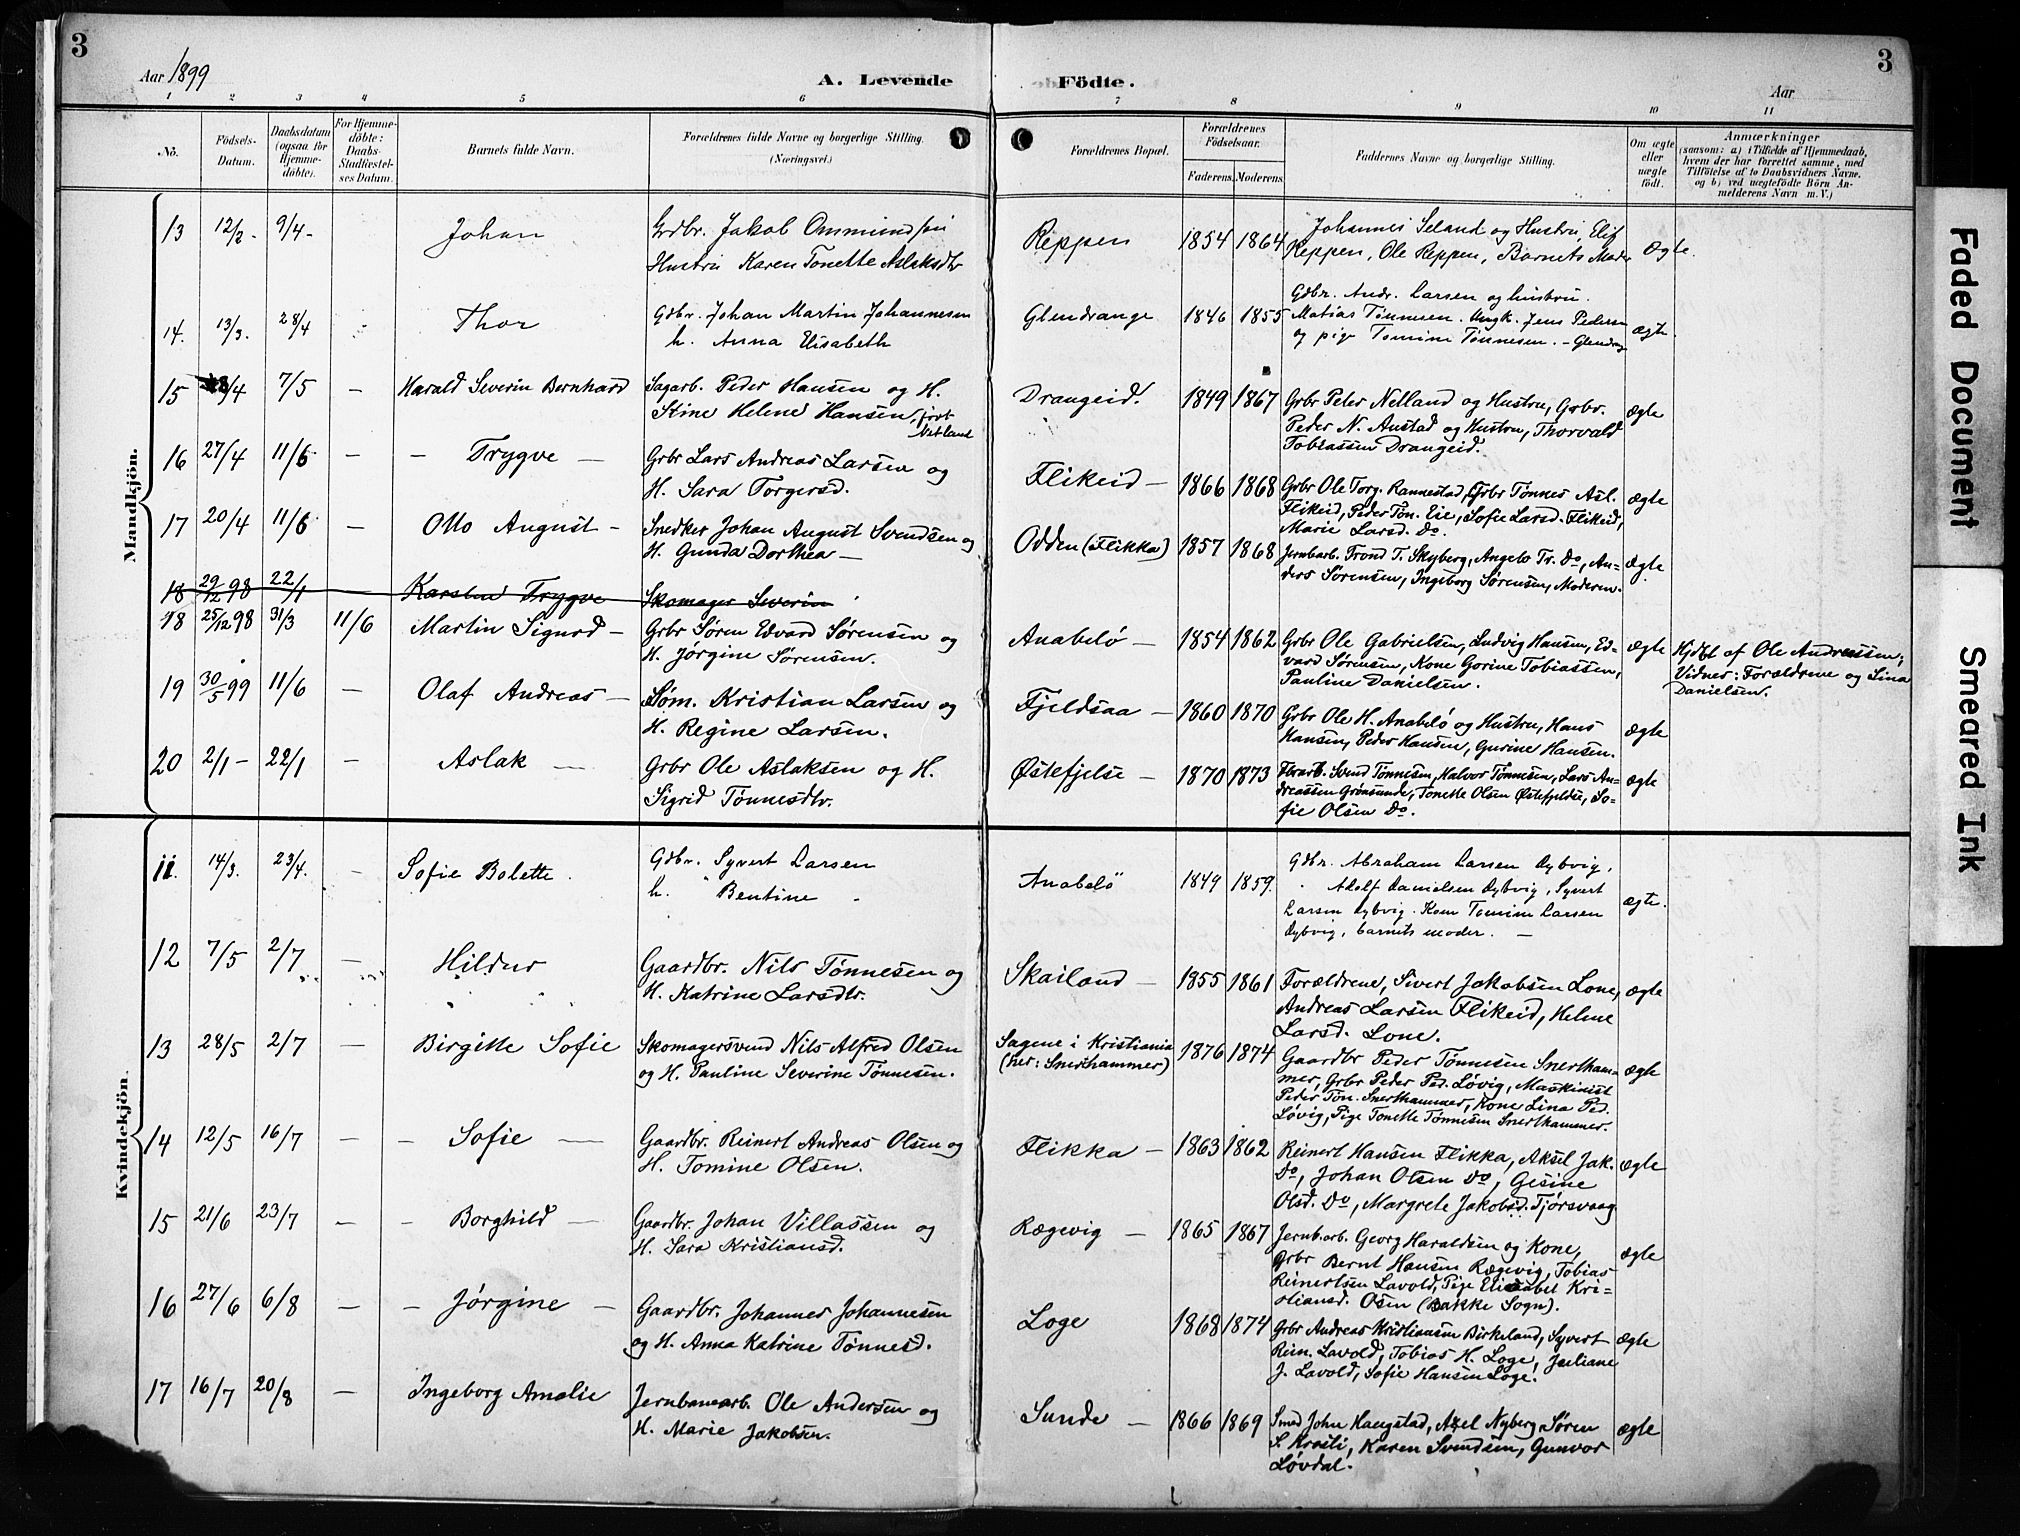 3
Aar 1899
A. Levende
Födte.
Aar
3
1 2 3 4 5 6 7 8 9 10 11
No.
Födsels-
Datum.
Daabsdatum
(ogsaa for
Hjemme-
döbte).
For Hjemme-
döbte:
Daabs-
Stadfæstel-
ses Datum.
Barnets fulde Navn.
Forældrenes fulde Navne og borgerlige Stilling.
(Næringsvei.)
Forældrenes Bopæl.
Forældrenes
Födselsaar.
Faderens. Moderens.
Faddernes Navne og borgerlige Stilling.
Om ægte
eller
uægte
födt.
Anmærkninger
(saasom: a) i Tilfælde af Hjemmedaab,
hvem der har forrettet samme, med
Tilföielse af to Daabsvidners Navne.
og b) ved uægtefödte Börn An-
melderens Navn m. V.)
Mandkjön.
13 12/2 - 9/4 - Johan
Grdbr. Jakob Ommundsen
Hustru Karen Tonette Aslaksdtr
Reppen 1854 1864
Johannes Seland og Hustru, Elif
Reppen, Ole Reppen, Barnets Moder
Ægte.
14. 13/3. 28/4 Thor
Gdbr. Johan Martin Johannesen
h. Anna Elisabeth
Glendrange 1846 1855
Gdbr. Andr. Larsen og hustru.
Matias Tønnesen. Ungk. Jens Pedersen
og pige Tomine Tønnesen. - Glendrag
ægte.
15 /4 7/5 — Harald Severin Bernhard
Sagarb. Peder Hansen og H.
Stine Helene Hansen, født
Netland
Drangeid. 1849 1867
Grbr Peter Nelland og Hustru, Grbr.
Peder N. Austad og Hustru, Thorvald
Tobiassen Drangeid.
ægte
16 27/4 11/6 — — Trygve —
Grbr Lars Andreas Larsen og
H. Sara Torgersd.
Flikeid — 1866 1868
Grbr Ole Torg. Rannestad, Grbr Tønnes Asl.
Flikeid, Peder Tøn. Eie, Sofie Larsd. Flikeid,
Marie Larsd. Do.
ægte
17 20/4 11/6 — Otto August —
Snedker Johan August Svendsen og
H. Gunda Dorthea —
Odden (Flikka) 1857 1868
Jernbarb. Trond T. Skyberg, Angelo Tr. Do, An-
ders Sørensen, Ingeborg Sørensen, Moderen.
ægte
18 29/12 98 22/1 Karsten Trygve Skomager Severin
18 25/12 98 31/3 11/6 Martin Sigurd —
Grbr Søren Edvard Sørensen og
H. Jørgine Sørensen.
Anabelø — 1854 1862
Grbr Ole Gabrielsen, Ludvig Hansen, Ed-
vard Sørensen, Kone Gorine Tobiassen,
Pauline Danielsen.
ægte
Hjdbt af Ole Andreassen;
Vidner: Forældrene og Lina
Danielsen.
19 30/5 99 11/6 — Olaf Andreas —
Søm. Kristian Larsen og
H. Regine Larsen.
Fjeldsaa — 1860 1870
Grbr Ole H. Anabelø og Hustru, Hans
Hansen, Peder Hansen, Gurine Hansen.
ægte
20 2/1 — 22/1 Aslak —
Grbr Ole Aslaksen og H.
Sigrid Tønnesdtr.
Østefjelse — 1870 1873
Svend Tønnesen, Halvor Tønnesen, Lars An-
dreassen Grønsunde, Tonette Olsen Østefjeldse, So-
fie Olsen Do.
ægte
Kvindekjön.
11. 14/3. 23/4. — Sofie Bolette.
Gdbr. Syvert Larsen
h. Bentine
Anabelö 1849 1859.
Gdbr. Abraham Larsen Dybvig,
Adolf Danielsen Dybvig, Syvert
Larsen Dybvig. Kone Tomine Larsen
Dybvig, barnets moder. —
ægte.
12 7/5 2/7 — Hildur
Gaardbr. Nils Tønnesen og
H. Katrine Larsdtr.
Skailand — 1855 1861
Forældrene, Sivert Jakobsen Lone,
Andreas Larsen Flikeid, Helene
Larsd. Lone.
ægte
13 28/5 2/7 — Birgitte Sofie
Skomagersvend Nils Alfred Olsen
og H. Pauline Severine Tønnesen.
Sagene i Kristiania
(her: Snerthammer)
1876 1874
Gaardbr Peder Tønnesen Snertham-
mer, Grbr Peder Ped. Løvig, Maskinist
Peder Tøn. Snerthammer, Kone Lina Ped.
Løvig, Pige Tonette Tønnesen Snerthammer.
ægte
14 12/5 16/7 — — Sofie —
Gaardbr. Reinert Andreas Olsen og
H. Tomine Olsen.
Flikka — 1863 1862
Reinert Hansen Flikka, Aksel Jak.
Do, Johan Olsen Do, Gesine
Olsd. Do, Margrete Jakobsd. Tjørsvaag
ægte
15 21/6 23/7 — — Borghild —
Gaardbr. Johan Villassen og
H. Sara Kristiansd.
Rægevig — 1865 1867
Jernb.arb. Georg Haraldsen og Kone,
Grbr Bernt Hansen Rægevig, Tobias
Reinertsen Lavold, Pige Elisabet Kri-
stiansd. Osen (Bakke Sogn).
ægte
16 27/6 6/8 — — Jørgine —
Gaardbr. Johannes Johannesen
og H. Anna Katrine Tønnesd.
Loge 1868 1874
Grbr Andreas Kristiansen Birkeland, Syvert
Rein. Lavold, Tobias H. Loge, Juliane
J. Lavold, Sofie Hansen Loge.
ægte
17 16/7 20/8 — Ingeborg Amalie
Jernbanearb. Ole Andersen og
H. Marie Jakobsen.
Sunde — 1866 1869
Smed John Haugstad, Axel Nyberg, Søren
S. Kvasti, Karen Svendsen, Gunvor
Løvdal.
ægte
Faded Document
Smeared Ink